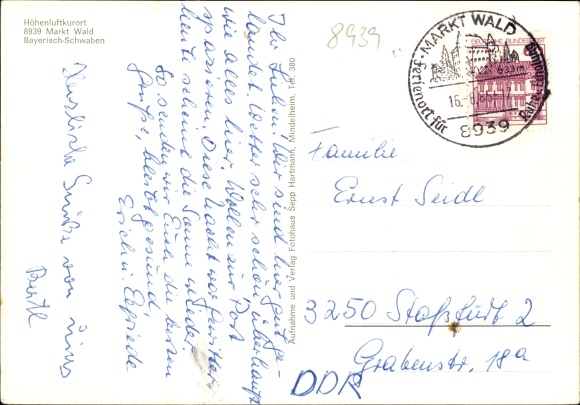 Höhenluftkurort
8939 Markt Wald
Bayerisch-Schwaben
8939
MARKT WALD
Ferienort für
8939
16.-8.86
DEUTSCHE BUNDESPOST
Ihr Lieben! Wir sind hier gut ge-
landet, Wetter sehr schön, überhaupt
wie alles hier. Wollen zur Post
spazieren. Diese Nacht war Gewitter
heute scheint die Sonne wieder.
So senden wir Euch die besten
Grüße, bleibt gesund,
Erich u. Elfriede
Herzliche Grüße von
Aufnahme und Verlag Fotohaus Sepp Hartmann, Mindelheim, Tel. 380
Familie
Ernst Seidl
3250 Staßfurt 2
Grabenstr. 18a
DDR